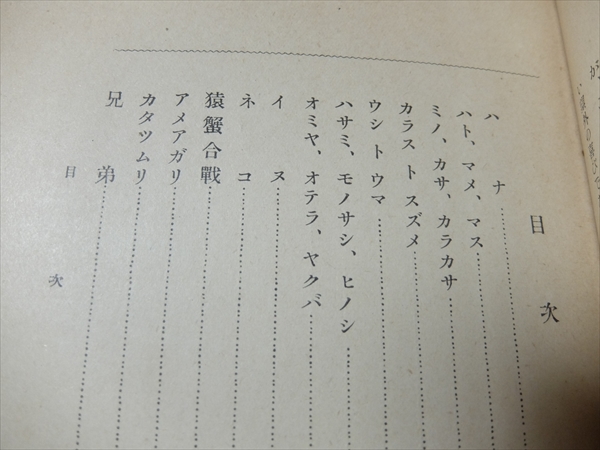 目次
ハナ
ハト、マメ、マス
ミノ、カサ、カラカサ
カラス ト スズメ
ウシ ト ウマ
ハサミ、モノサシ、ヒノシ
オミヤ、オテラ、ヤクバ
イヌ
ネコ
猿蟹合戰
アメアガリ
カタツムリ
兄弟
目次